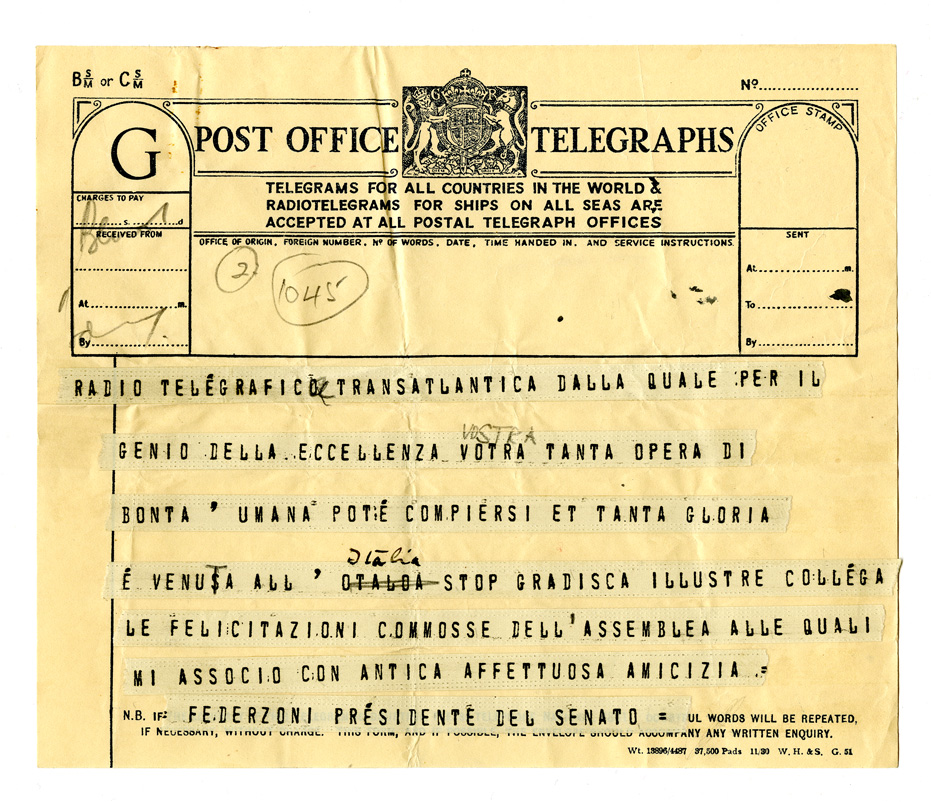 B S/M or C S/M
Nº
G
POST OFFICE TELEGRAPHS
OFFICE STAMP
TELEGRAMS FOR ALL COUNTRIES IN THE WORLD &
RADIOTELEGRAMS FOR SHIPS ON ALL SEAS ARE
ACCEPTED AT ALL POSTAL TELEGRAPH OFFICES
CHARGES TO PAY
s. d
RECEIVED FROM
OFFICE OF ORIGIN, FOREIGN NUMBER, Nº OF WORDS, DATE, TIME HANDED IN, AND SERVICE INSTRUCTIONS.
SENT
2
1045
At m.
By
At m.
To
By
RADIO TELÉGRAFICO TRANSATLANTICA DALLA QUALE PER IL
VOSTRA
GENIO DELLA ECCELLENZA VOTRA TANTA OPERA DI
BONTA ' UMANA POTÉ COMPIERSI ET TANTA GLORIA
Italia
É VENUTA ALL ' OTALOA STOP GRADISCA ILLUSTRE COLLÉGA
LE FELICITAZIONI COMMOSSE DELL'ASSEMBLEA ALLE QUALI
MI ASSOCIO CON ANTICA AFFETTUOSA AMICIZIA .=
N.B. IF= FEDERZONI PRÉSIDENTE DEL SENATO = UL WORDS WILL BE REPEATED,
IF NECESSARY, WITHOUT CHARGE. THIS FORM, AND IF POSSIBLE, THE ENVELOPE SHOULD ACCOMPANY ANY WRITTEN ENQUIRY.
Wt. 13896/4487 37,500 Pads 11/30 W. H. & S. G. 51